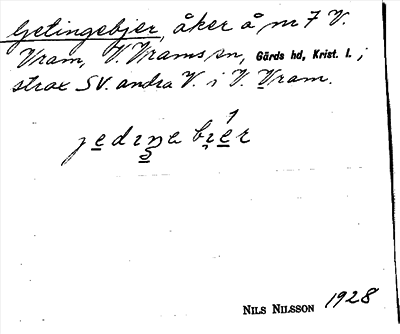 Getingebjer, åker å nr 7 V.
Vram, V. Vrams sn, Gärds hd, Krist. l.;
strax SV. andra V. i V. Vram.
NILS NILSSON 1928